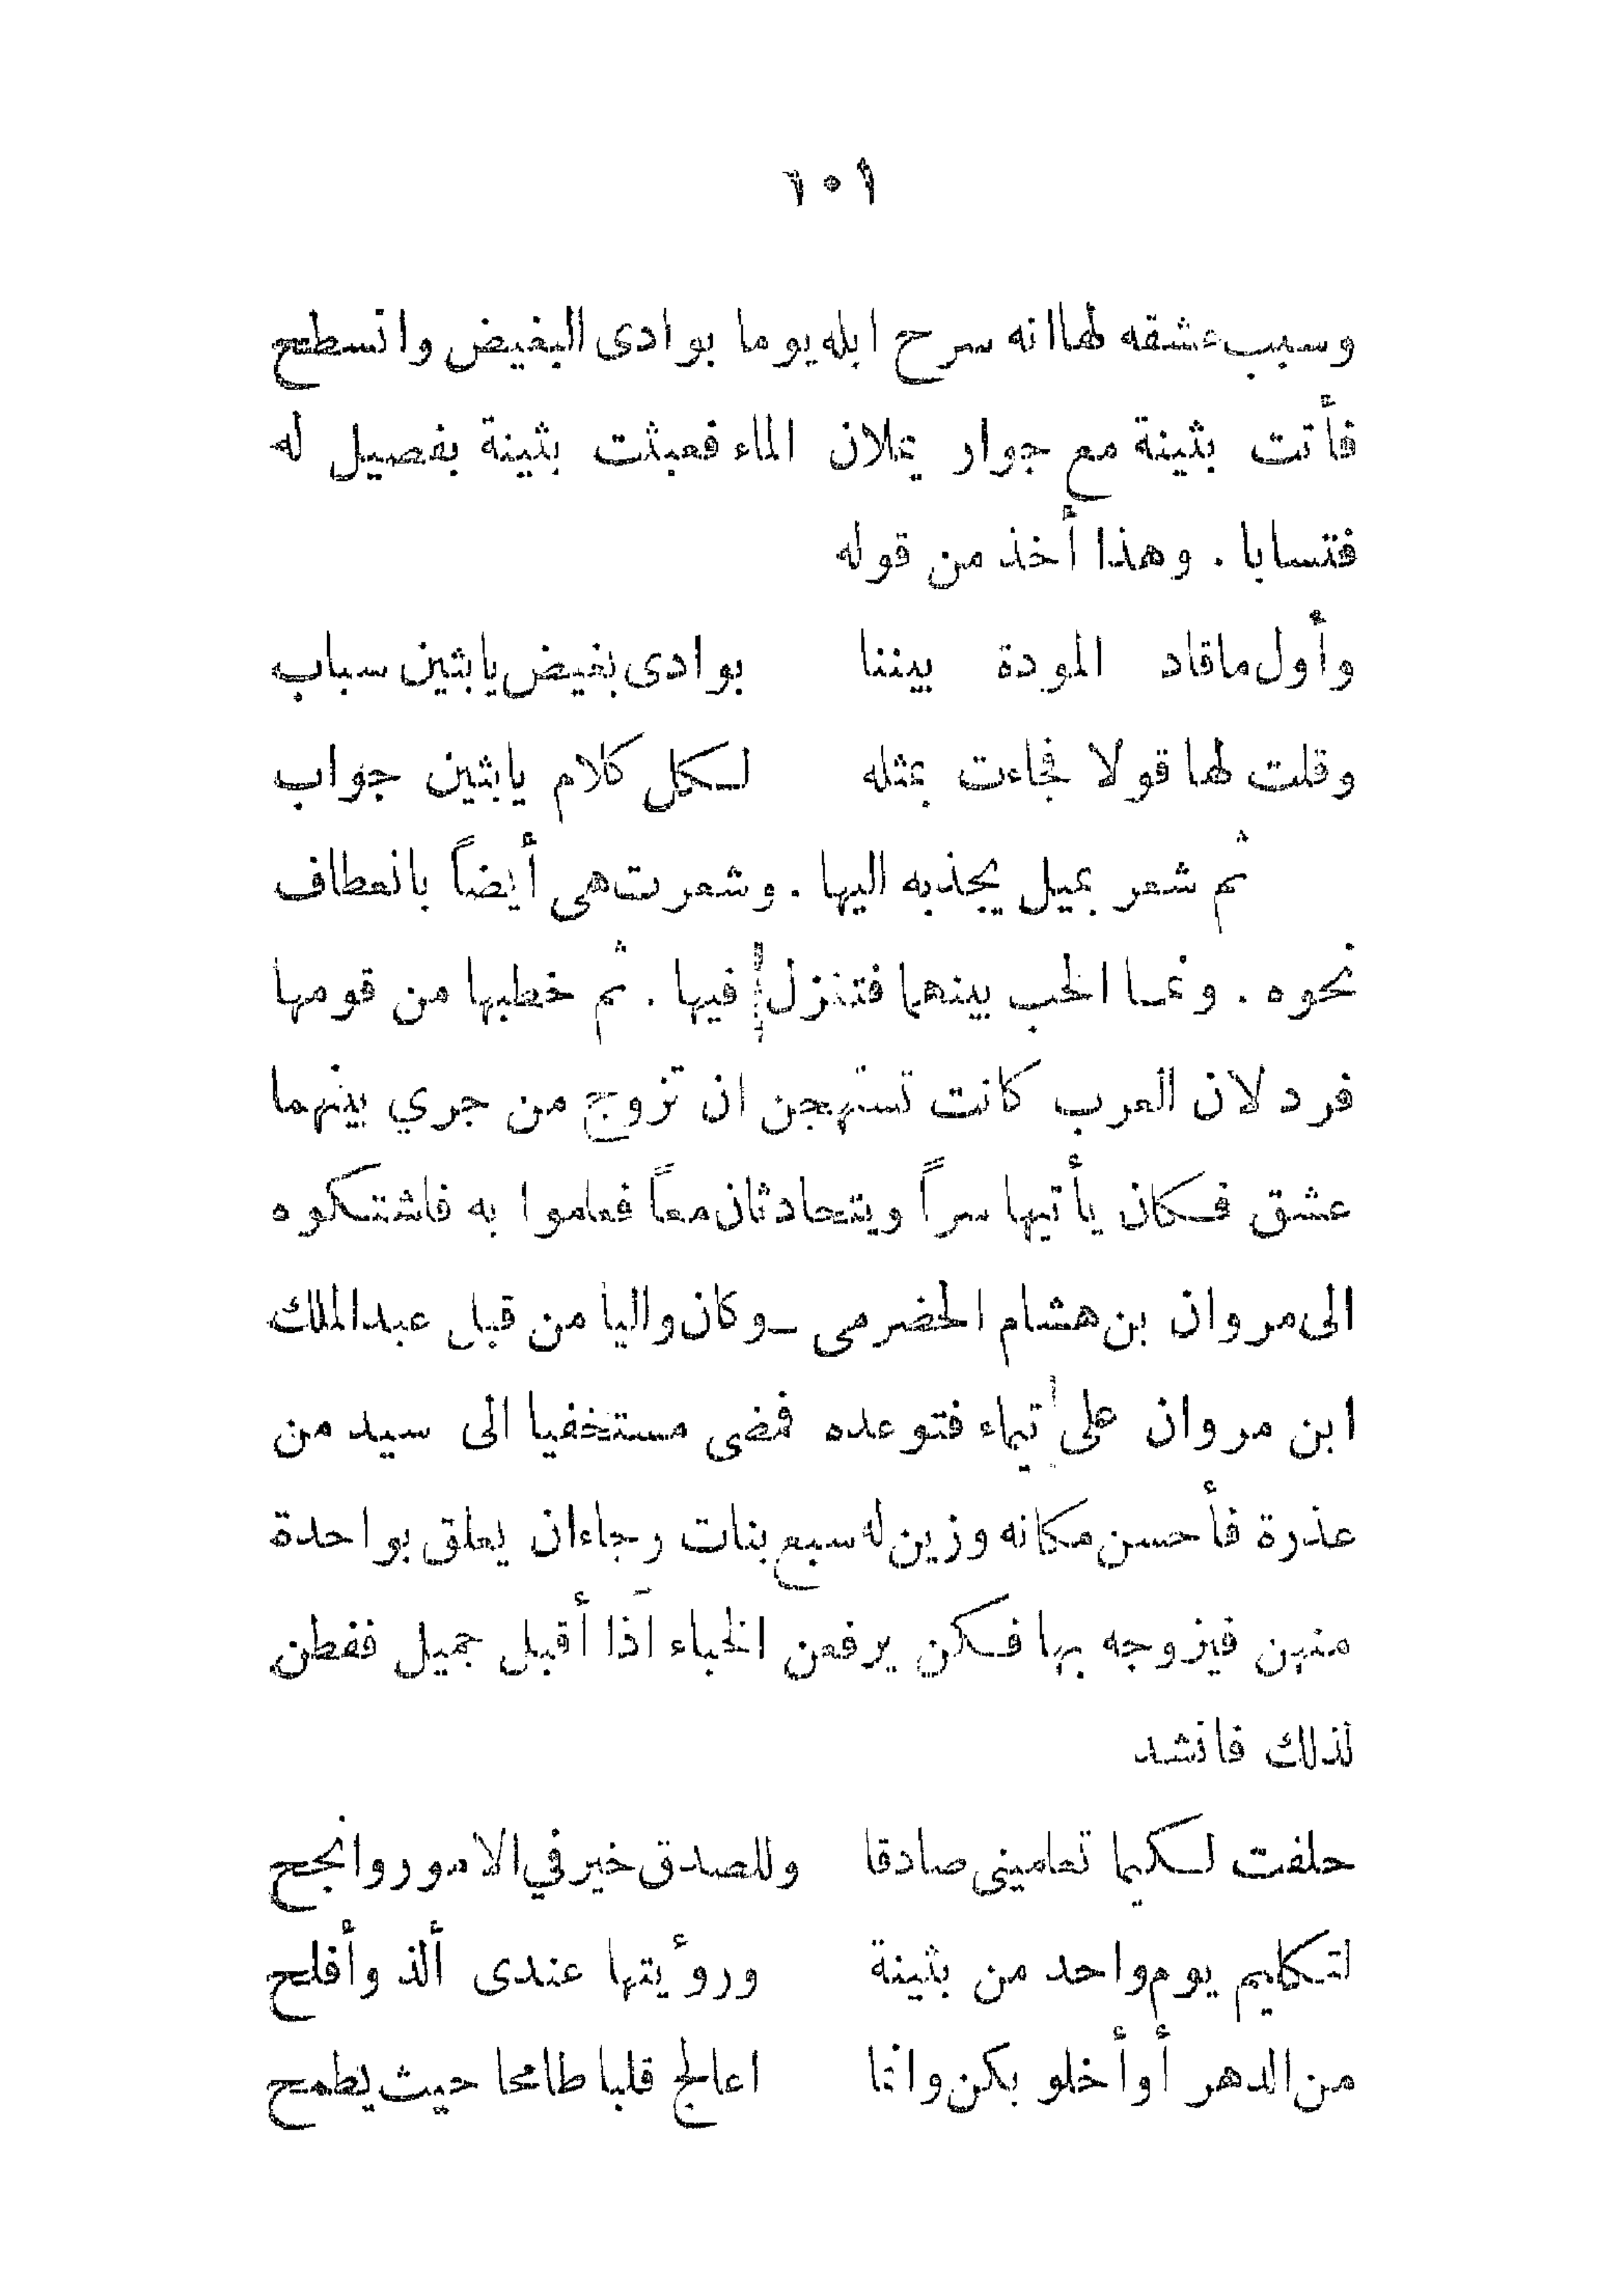 ١٥١
وسبب عشقه لها انه سرح ابله يوما بوادى البغيض وانسطح
فأتت بثينة مع جوار يملان الماء فعبثت بثينة بفصيل له
فتسابا . وهذا أخذ من قوله
وأول ماقاد المودة بيننا بوادى بغيض يابثين سباب
وقلت لها قولا فجاءت بمثله لكل كلام يابثين جواب
ثم شعر بميل يجذبه اليها . وشعرت هى أيضاً بانعطاف
نحوه . ونمــا الحب بينهما فتنزل فيها . ثم خطبها من قومها
فرد لان العرب كانت تستهجن ان تزوج من جري بينهما
عشق فكان يأتيها سراً ويتحادثان معاً فعلموا به فاشتكوه
الى مروان بن هشام الحضرمى ــ وكان واليا من قبل عبدالملك
ابن مروان على تيماء فتوعده فمضى مستخفيا الى سيد من
عذرة فأحسن مكانه وزين له سبع بنات رجاء ان يعلق بواحدة
منهن فيزوجه بها فكن يرفعن الخباء اذا أقبل جميل ففطن
لذلك فانشد
حلفت لكيما تعلمينى صادقا وللصدق خير في الامور وانجح
لتكليم يوم واحد من بثينة ورؤيتها عندى ألذ وأفلح
من الدهر أو أخلو بكن وانما اعالج قلبا طامحا حيث يطمح